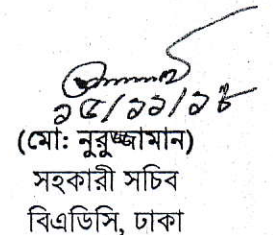 ১৫/১১/১৮
(মো: নুরুজ্জামান)
সহকারী সচিব
বিএডিসি, ঢাকা